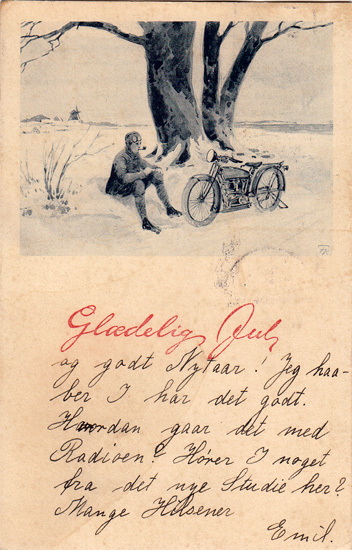 Glædelig Jul,
og godt Nytaar! Jeg haa-
ber I har det godt.
Hvordan gaar det med
Radioen? Hører I noget
fra det nye Studie her?
Mange Hilsener
Emil.